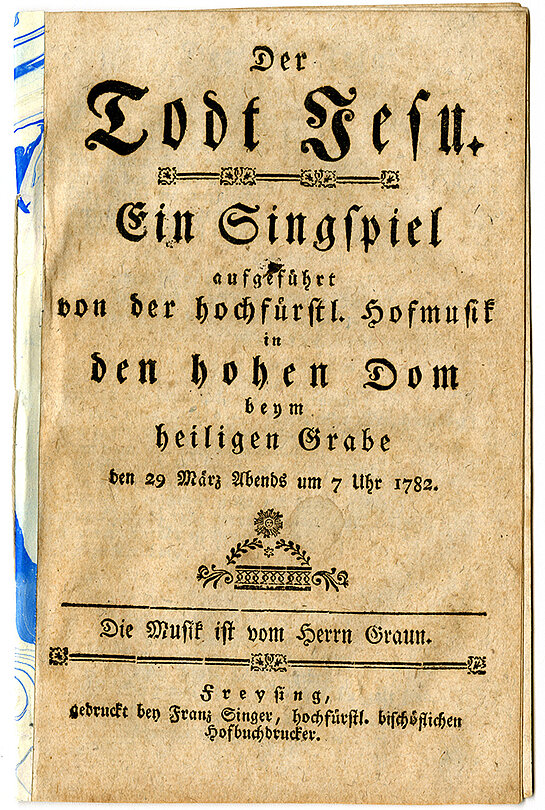 Der
Todt Jesu.
Ein Singspiel
aufgeführt
von der hochfürstl. Hofmusik
in
den hohen Dom
beym
heiligen Grabe
den 29 März Abends um 7 Uhr 1782.
Die Musik ist vom Herrn Graun.
Freysing,
gedruckt bey Franz Singer, hochfürstl. bischöflichen
Hofbuchdrucker.